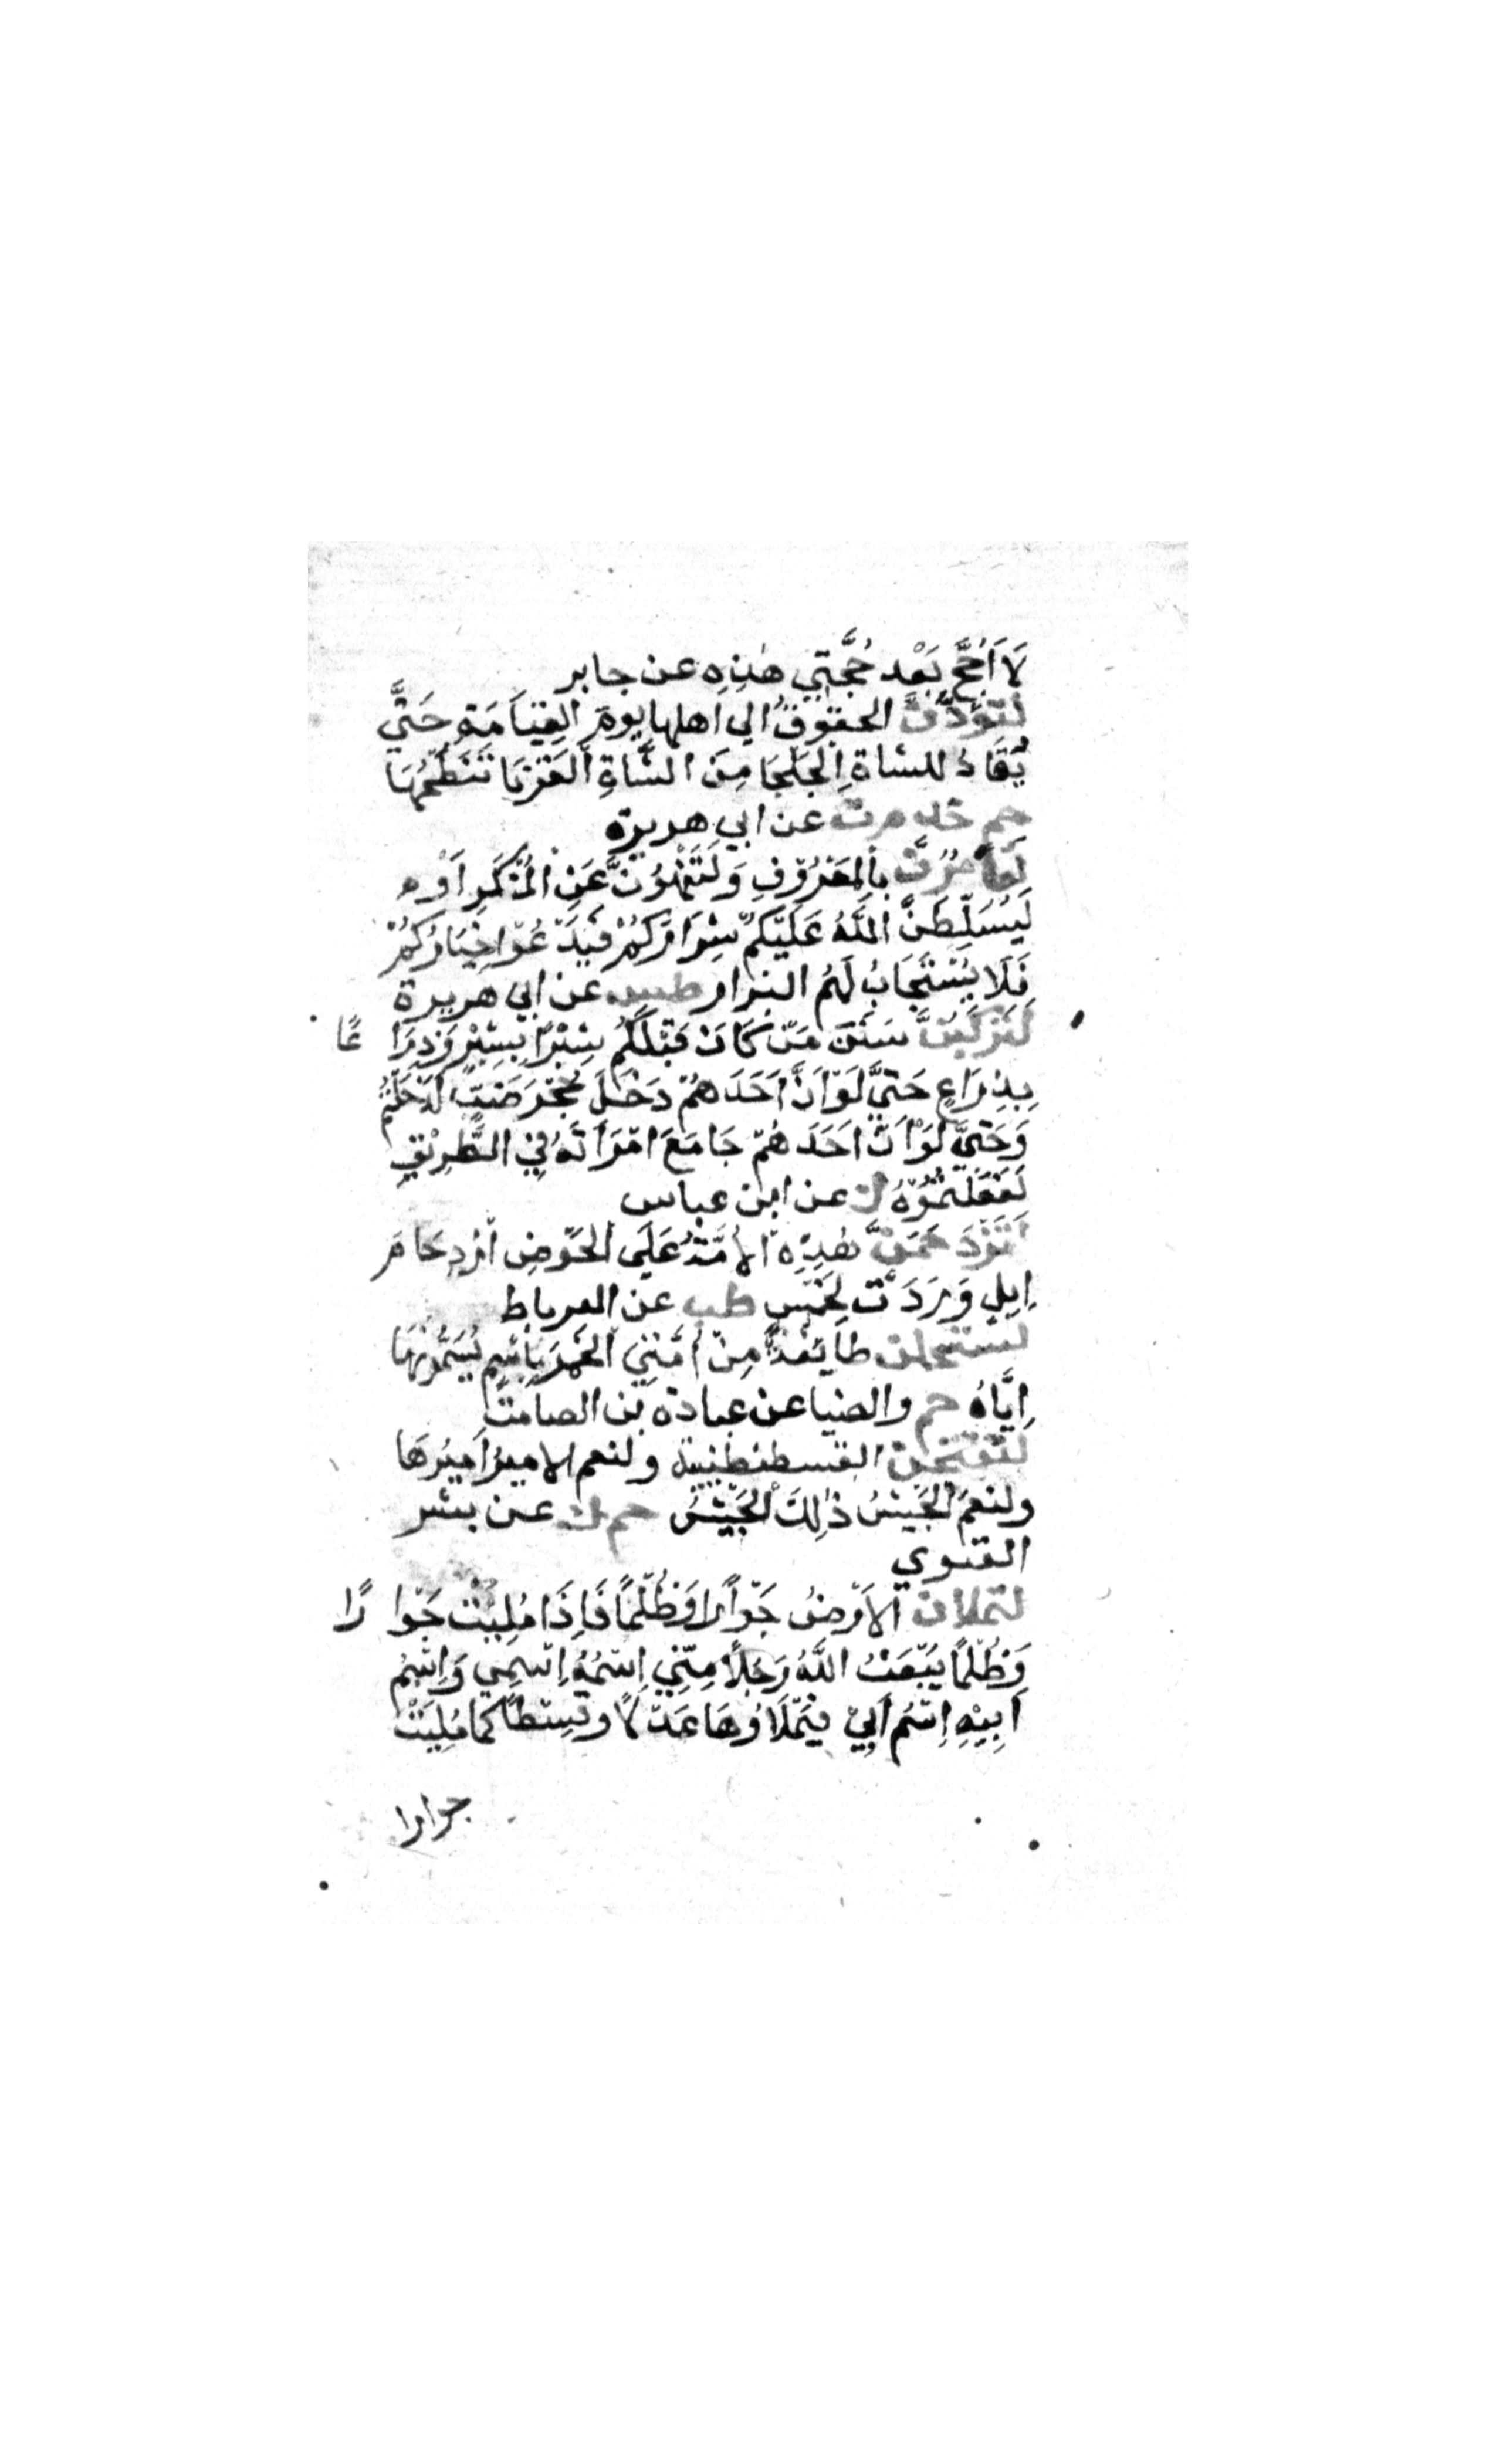 لَا أَحُجُّ بَعْد حُجَّتِي هٰذِهِ عن جابر
لَتُؤَدُّنَّ الحقوقُ الي اَهلها يومَ القِيَامَةِ حَتَّي
يُقَادُ للشاةِ الجَلْجَا مِنَ الشَّاةِ القَرْنَا تَنْطَحُهَا
حم خد م ت عن ابي هريرة
لَتَأمُرُنَّ بِالمَعْرُوْفِ وَلَتَنْهَوُنَّ عَنِ الْمُنْكَرِ اَوْ
لَيُسَلِّطَنَّ اللَّهُ عَلَيْكُمْ شِرَارَكُمْ فَيَدْعُوْا خِيَارُكُمْ
فَلَا يُسْتَجَابُ لَهُمُ البزار طس عن ابي هريرة
لَتَرْكَبُنَّ سَنَنَ مَنْ كَانَ قَبْلَكُمْ شِبْرًا بِشِبْرٍ وَذِرَا عًا
بِذِرَاعٍ حَتَّي لَوْ اَنَّ اَحَدَهُمْ دَخَلَ جُحْرَ ضَبٍّ لَدَخَلْتُمْ
وَحَتَّي لَوْ اَنَّ اَحَدَهُمْ جَامَعَ امْرَاَتَهُ فِي الطَّرِيْقِ
لَفَعَلْتُمُوْهُ ك عن ابن عباس
لَتَزْدَحِمَنَّ هٰذِهِ الأُمَّةُ عَلَى الْحَوْضِ اَزْدِحَامَ
اِبِلٍ وَرَدَتْ لِخَمْسٍ طب عن العرباط
لتستحلن طَايفَةٌ مِنْ اُمَّتِي الْخَمْرَ بِاسْمٍ يُسَمُّوْنَهَا
اِيَّاهُ حم والضيا عن عبادة بن الصامت
لتفتحن القسطنطنية ولنعم الامير اَمِيْرُهَا
ولنعمَ الْجَيْشُ ذٰلِكَ الْجَيْشُ حم ك عن بشر
الغنوي
لتملان الاَرْضُ جَوْاًرا وَظُلْمًا فَاِذَا مُلِيَتْ جَوْا رًا
وَظُلْمًا يَبْعَثُ اللَّهُ رَجُلًا مِنِّي اِسْمُهُ اِسْمِي وَاِسْمُ
اَبِيْهِ اِسْمُ اَبِيْ فَيَمْلَاُوهَا عَدْلًا وَقِسْطًا كما مُلِيَتْ
جوارا